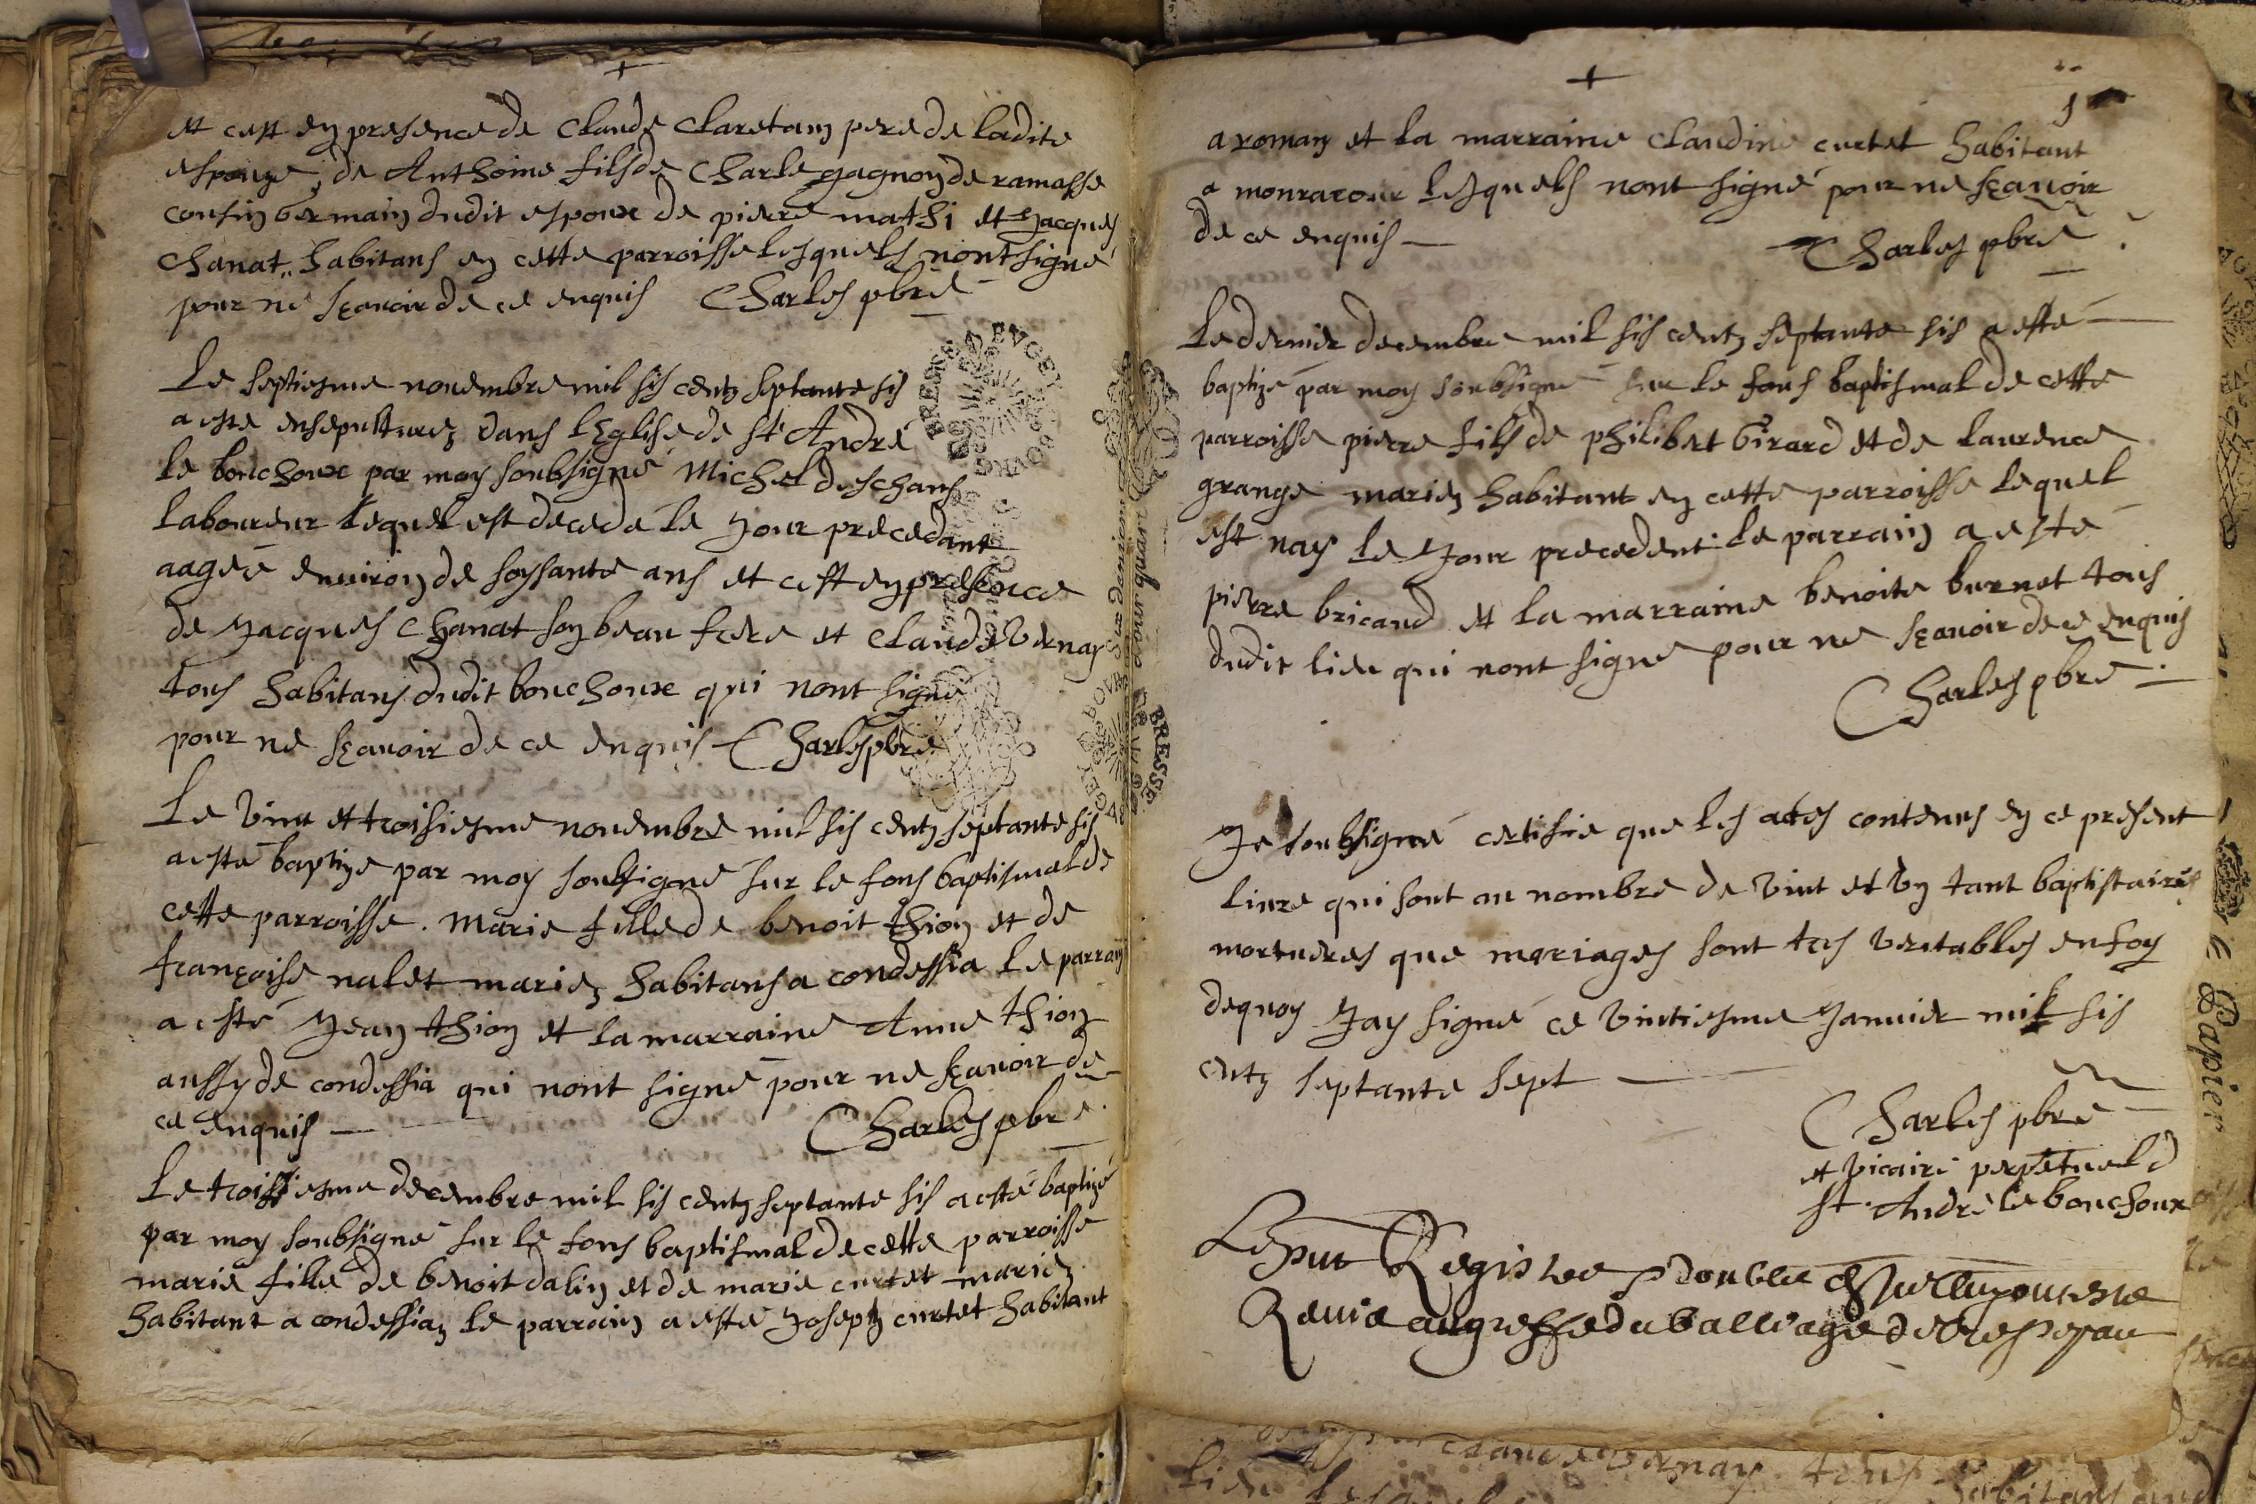 et cest en presence de Claude Claretan pere de ladite
espouze, de Anthoine fils de Charle gagnon de ramasse
cousin germain dudit espoux de pierre mathi et Jacques
Chanat habitans en cette parroisse lesquels nont signé
pour ne sçavoir de ce enquis Charles pbre
Le septiesme novembre mil sis centz septante sis
a esté ensepulturez dans l'Eglise de st André
le bouchoux par moy soubsigné Michel deschans
laboureur lequel est decedé le jour precedant
aagée environ de soyssante ans et cest en presence
de Jacques Chanat son beau frere et Claude Vernay
tous habitans dudit bouchoux qui nont signé
pour ne sçavoir de ce enquis Charles pbre
Le vint et troisiesme novembre mil sis centz septante sis
a esté baptize par moy soubsigné sur le fons baptismal de
cette parroisse. Marie fille de benoit thion et de
françoise nalet mariez habitans a condessia le parrain
a esté Jean thion et la marraine Anne thion
aussy de condessia qui nont signé pour ne sçavoir de
ce enquis Charles pbre
Le troissiesme decembre mil sis centz septante sis a esté baptizé
par moy soubsigné sur le fons baptismal de cette parroisse
marie fille de benoit dalin et de marie curtet mariez
habitant a condessian le parrain a esté Joseph curtet habitant
a roman et la marraine Claudine curtet habitant
a monracour lesquels nont signé pour ne sçavoir
de ce enquis Charles pbre
Le dernier decembre mil sis centz septante sis a esté
baptizé par moy soubsigné sur le fons baptismal de cette
parroisse pierre fils de philibert Girard et de laurence
grange mariez habitant en cette parroisse lequel
est nay le jour precedent le parrain a esté
pierre bricaud et la marraine benoite burnet tous
dudit lieu qui nont signé pour ne sçavoir de ce enquis
Charles pbre
Je soubsigné certifie que les actes contenus en ce present
livre qui sont au nombre de vint et un tant baptistaires
mortueres que mariages sont tres veritables en foy
dequoy Jay signé ce vintiesme Janvier mil sis
centz septante sept
Charles pbre
et vicaire perpetuel d
st André le bouchoux
Registre double
au greffe du balliage de bresse
BRESSE BVGEY BOVRG
BOVRG BRESSE BVGEY
Papier